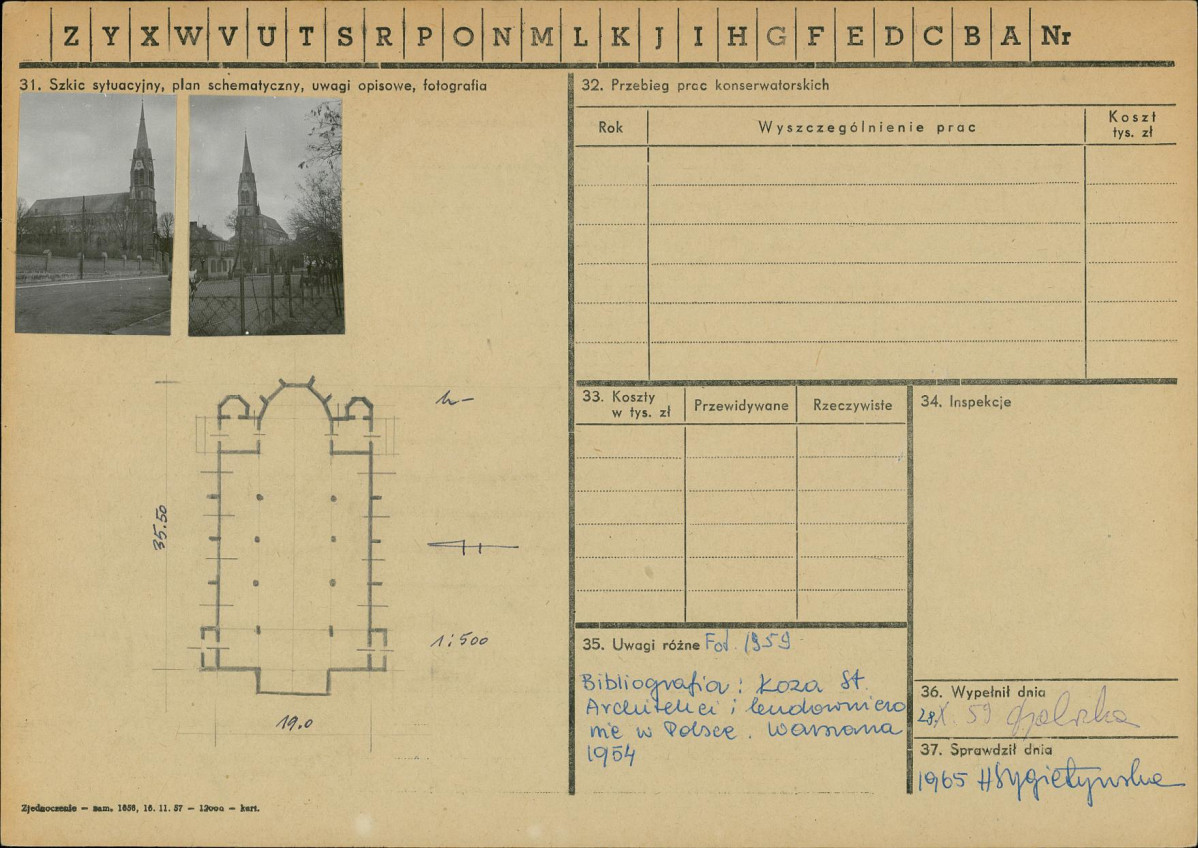 Z Y X W V U T S R P O N M L K J I H G F E D C B A Nr
31. Szkic sytuacyjny, plan schematyczny, uwagi opisowe, fotografia
35.50
1:500
19.0
Zjednoczenie — zam. 1656, 16. 11. 57 — 12000 — kart.
32. Przebieg prac konserwatorskich
Rok
Wyszczególnienie prac
Koszt
tys. zł
33. Koszty
w tys. zł
Przewidywane
Rzeczywiste
34. Inspekcje
35. Uwagi różne Fot. 1959
Bibliografia: Łoza St.
Architekci i budowniczo
wie w Polsce. Warszawa
1954
36. Wypełnił dnia
28.X. 59
37. Sprawdził dnia
1965 HSygietyńska